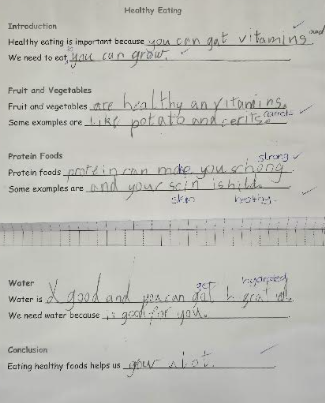 Healthy Eating
Introduction
Healthy eating is important because you can gat vitamins and
We need to eat, you can grow.
Fruit and Vegetables
Fruit and vegetables are healthy an vitamins.
carrots
Some examples are like potato and cerits.
Protein Foods
strong
Protein foods protein can make you schong
Some examples are and your scin is
skin
Water
get hydrated
Water is good and you can gat
We need water because is good for you.
Conclusion
Eating healthy foods helps us grow a lot.